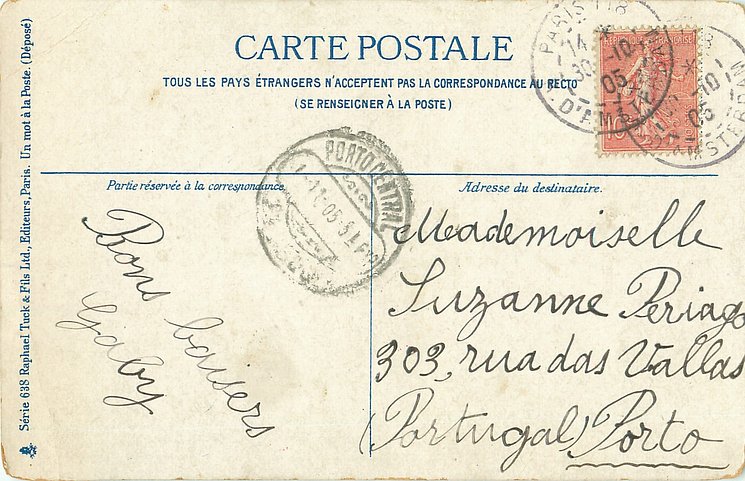 CARTE POSTALE
TOUS LES PAYS ÉTRANGERS N'ACCEPTENT PAS LA CORRESPONDANCE AU RECTO
(SE RENSEIGNER À LA POSTE)
Série 638 Raphael Tuck & Fils Ltd., Editeurs, Paris. Un mot à la Poste. (Déposé)
Partie réservée à la correspondance.
Bons baisers
Gaby
Adresse du destinataire.
Mademoiselle
Suzanne Periago
303, rua das Vallas
(Portugal) Porto
PARIS 118
14
30 -10
05
D'AMSTERDAM
-10
05
AMSTERDAM
PORTO CENTRAL
05